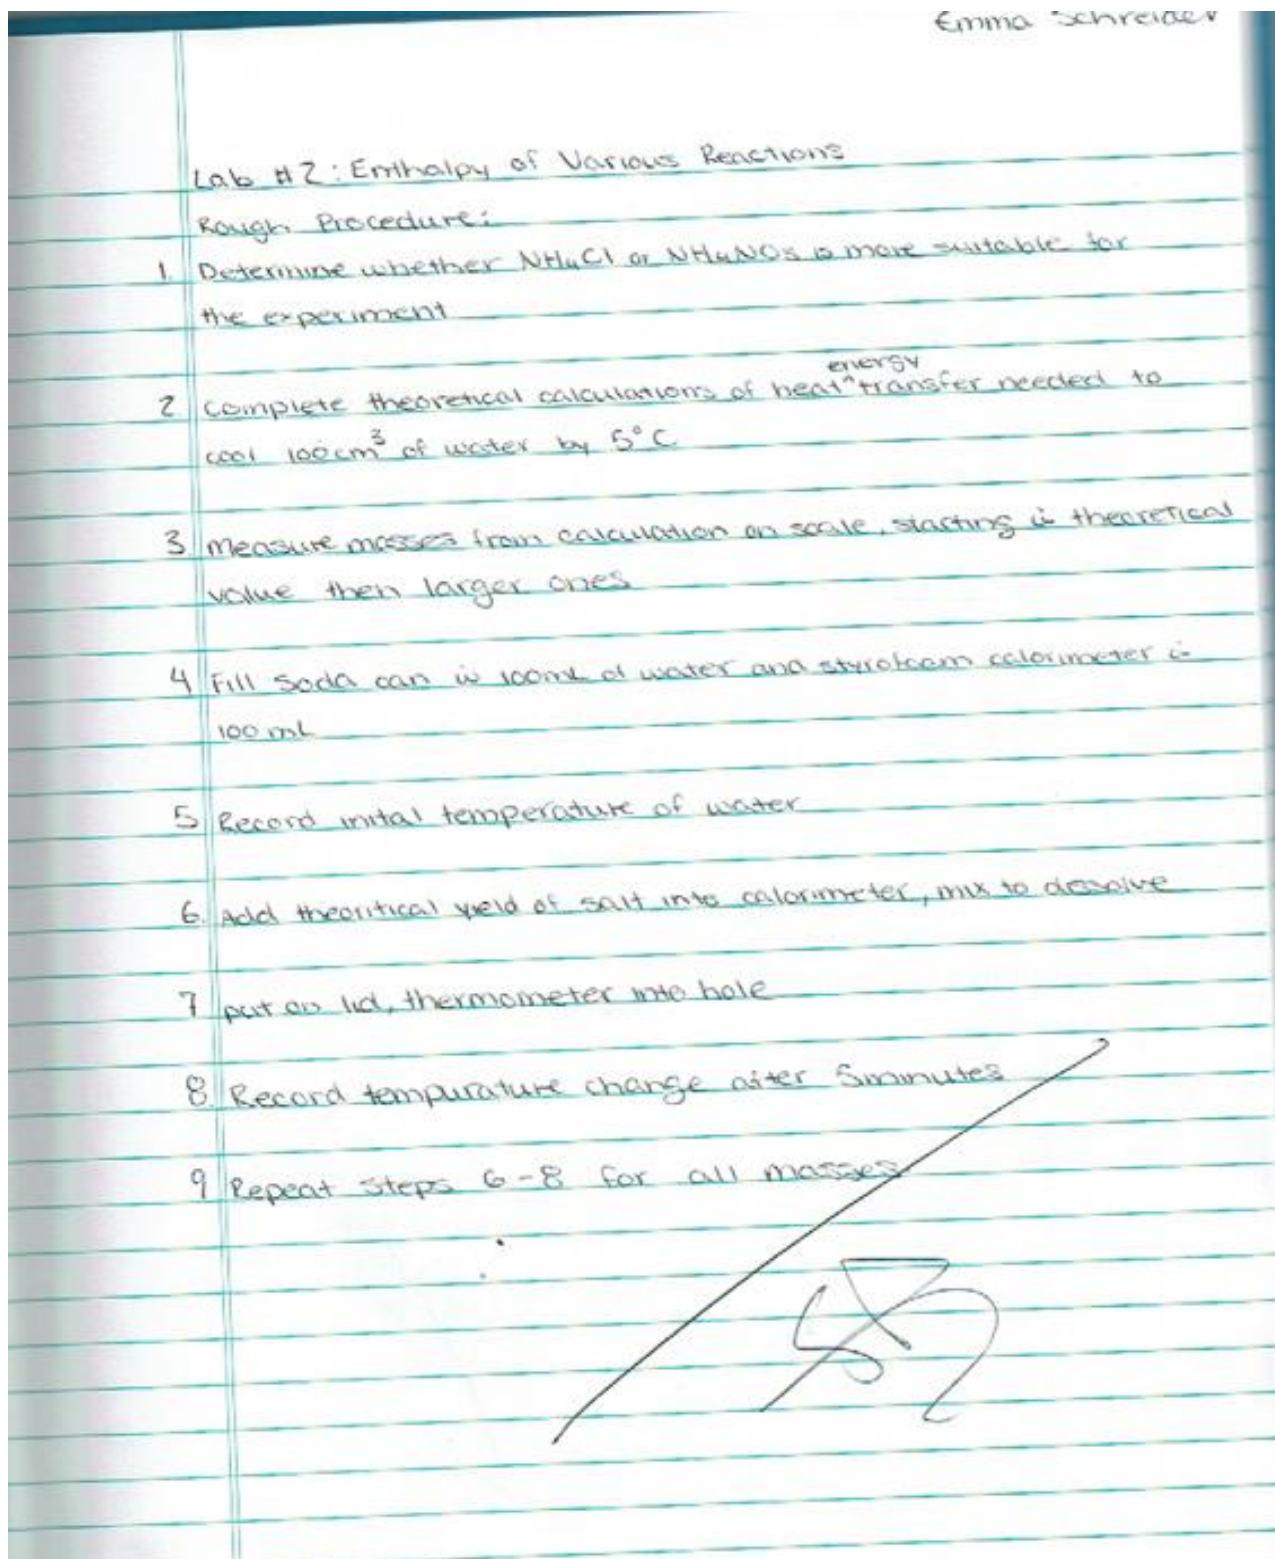 Emma Schreider
Lab #2: Enthalpy of Various Reactions
Rough Procedure:
1. Determine whether NH4Cl or NH4NO3 is more suitable for
the experiment
energy
2 Complete theoretical calculations of heat ^ transfer needed to
cool 100cm³ of water by 5°C
3 Measure masses from calculation on scale, starting w theoretical
value then larger ones
4 Fill soda can w 100mL of water and styrofoam calorimeter w
100 mL
5 Record inital temperature of water
6. Add theoritical yield of salt into calorimeter, mix to dissolve
7 put on lid, thermometer into hole
8. Record tempurature change after 5minutes
9 Repeat steps 6-8 for all masses